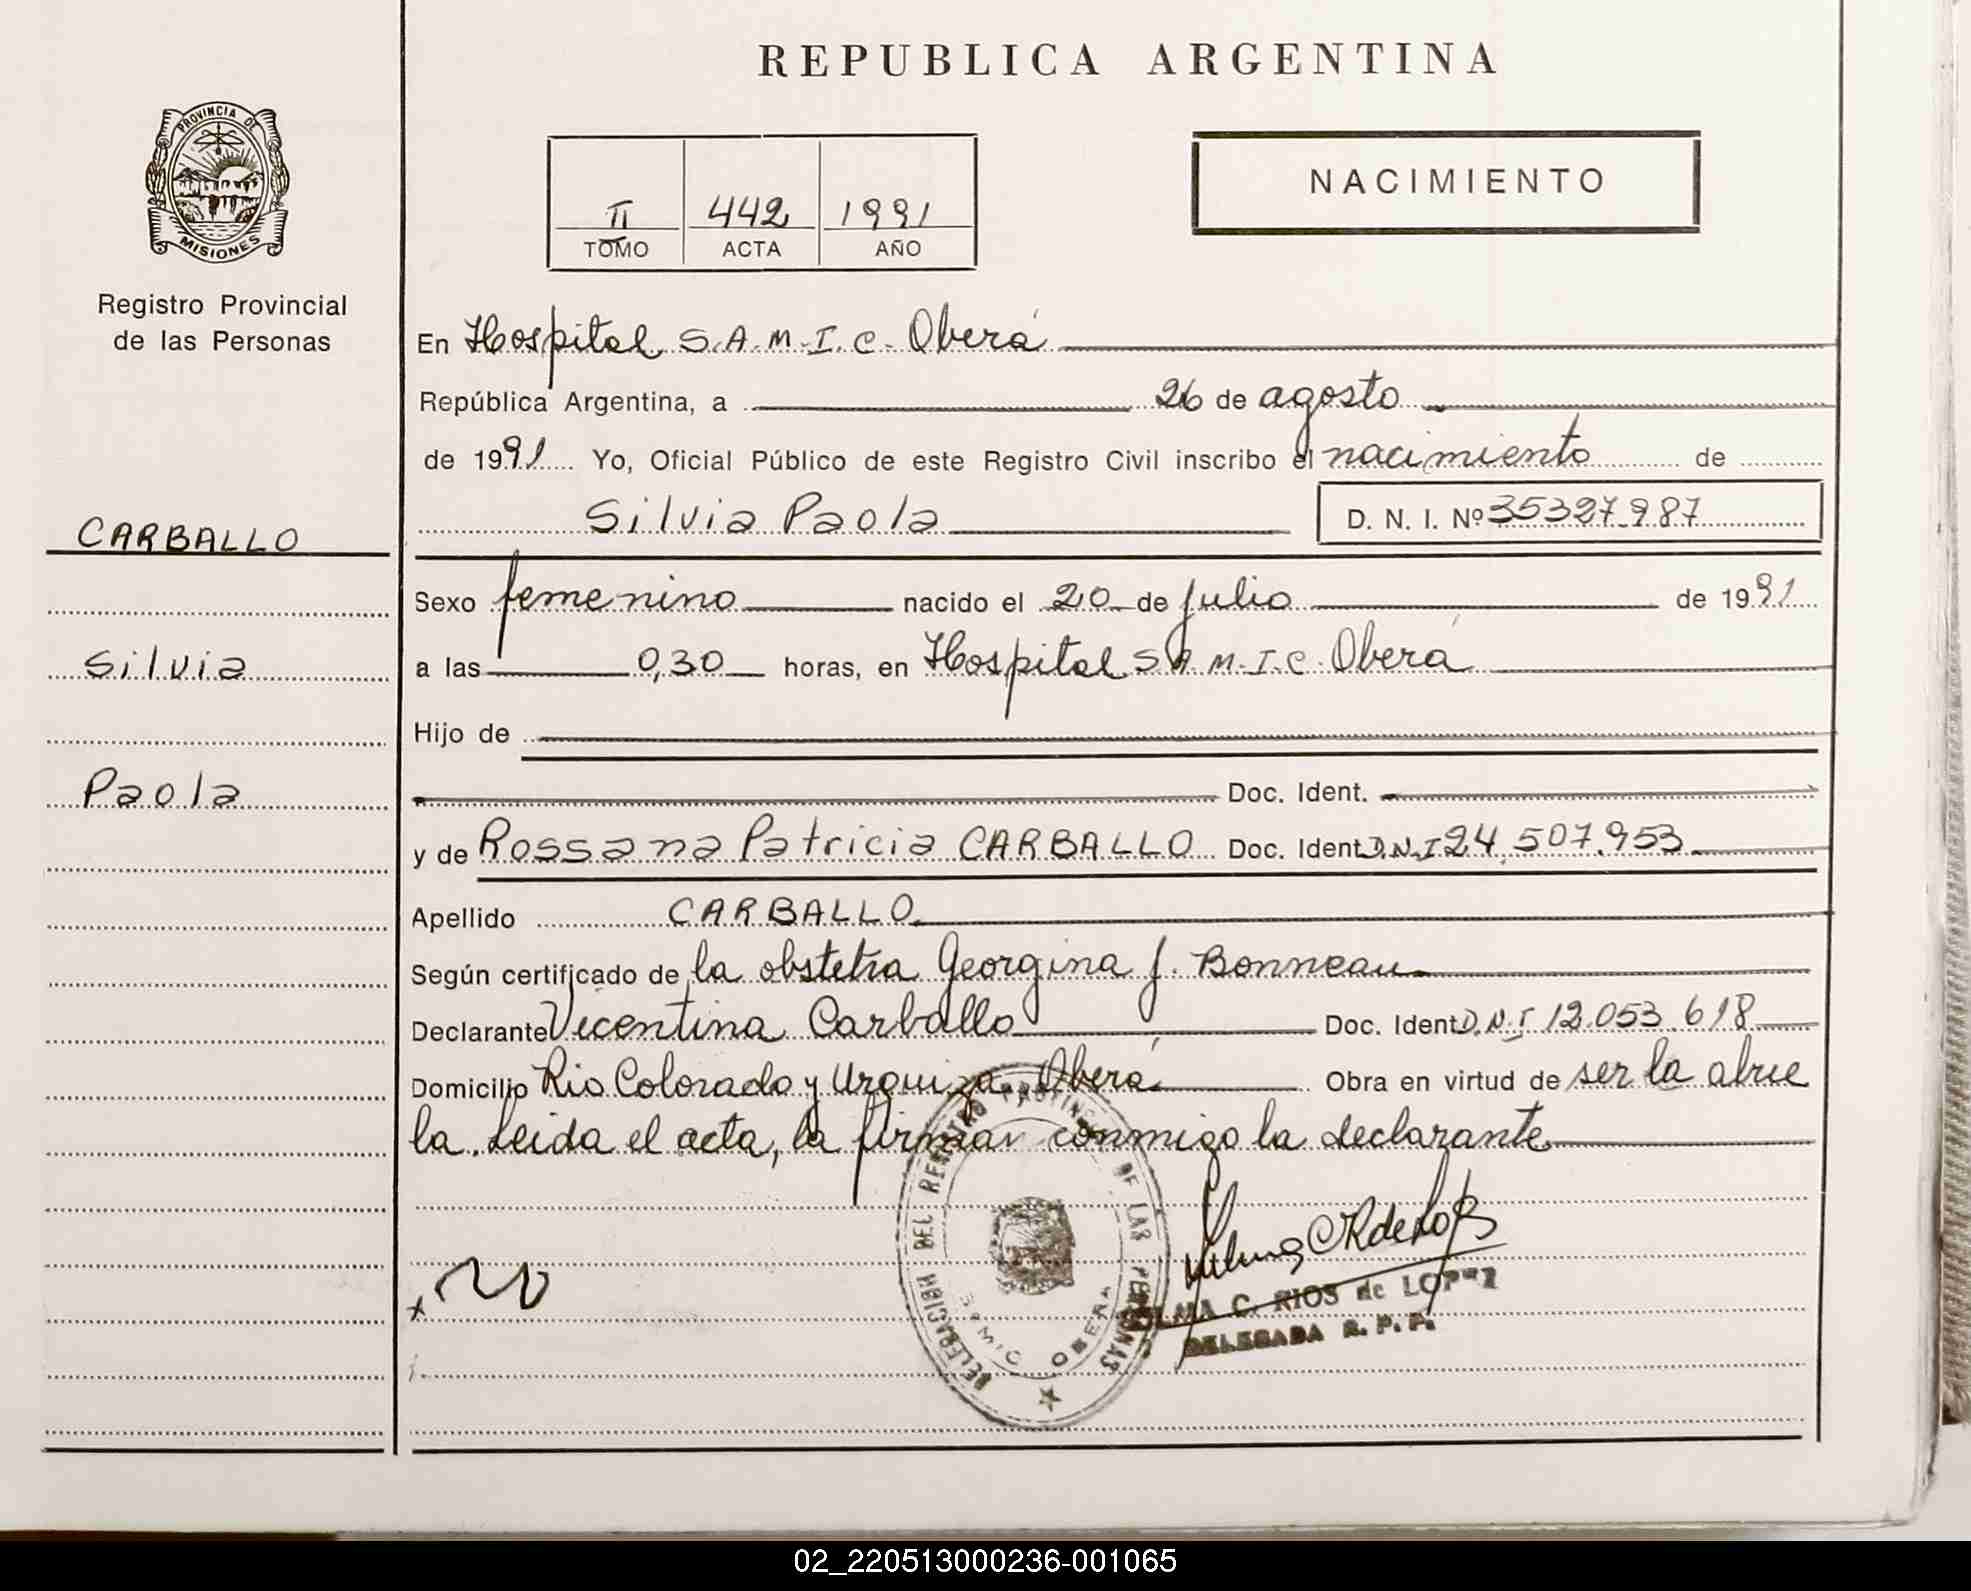 REPUBLICA ARGENTINA
PROVINCIA DE
MISIONES
Registro Provincial
de las Personas
II 442 1991
TOMO ACTA AÑO
NACIMIENTO
CARBALLO
Silvia
Paola
En Hospital S.A.M.I.C. Oberá
República Argentina, a 26 de agosto
de 1991 Yo, Oficial Público de este Registro Civil inscribo el nacimiento de
Silvia Paola D. N. I. Nº 35327.987
Sexo femenino nacido el 20 de julio de 1991
a las 0,30 horas, en Hospital S.A.M.I.C. Oberá
Hijo de
Doc. Ident.
y de Rossana Patricia CARBALLO Doc. Ident D.N.I 24.507.953
Apellido CARBALLO
Según certificado de la obstetra Georgina J. Bonneau
Declarante Vicentina Carballo Doc. Ident D.N.I 12.053.618
Domicilio Rio Colorado y Urquiza Oberá Obra en virtud de ser la abue
la. Leida el acta, la firma conmigo la declarante
DELEGACION DEL REGISTRO PROVINC DE LAS PERSONAS
SAMIC OBERA
C. RIOS de LOPEZ
DELEGADA R. P. P.
02_220513000236-001065